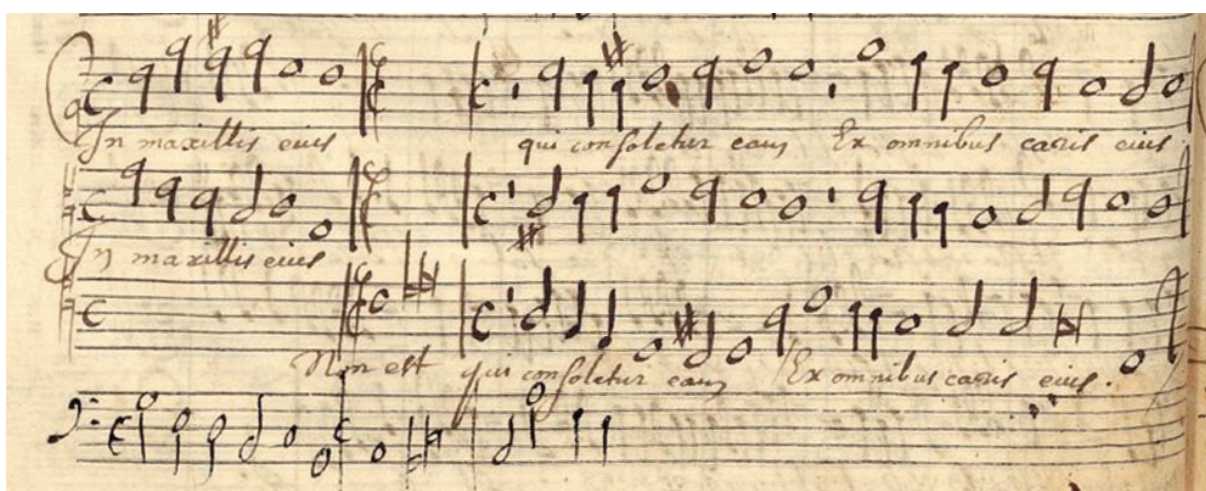 In maxillis eius qui consoletur eam Ex omnibus caris eius.
In maxillis eius
Non est qui consoletur eam Ex omnibus caris eius.